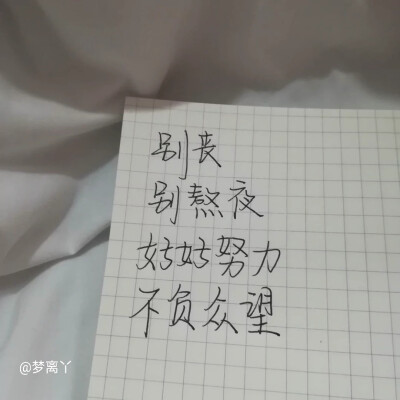 别丧
别熬夜
好好努力
不负众望
@梦离丫